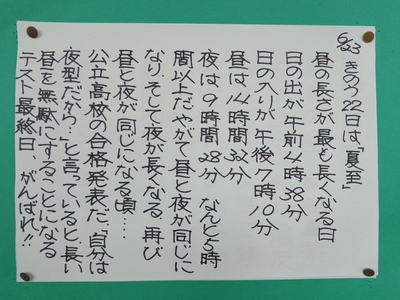 6/23 きのう22日は「夏至」
昼の長さが最も長くなる日
日の出が午前4時38分
日の入りが午後7時10分
昼は14時間32分
夜は9時間28分 なんと5時
間以上だ。やがて昼と夜が同じに
なり、そして夜が長くなる。再び
昼と夜が同じになる頃……
公立高校の合格発表だ。「自分は
夜型だから…」と言っていると、長い
昼を無駄にすることになる
テスト最終日、がんばれ!!